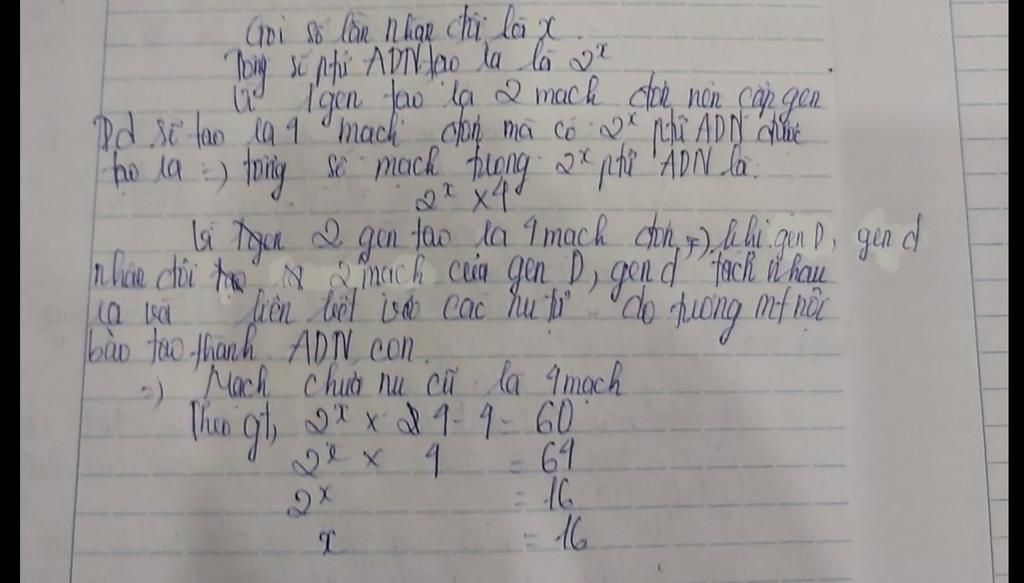 Gọi số lần nhân đôi là x
Tổng số ptử ADN tạo ra là 2^x
Vì 1 gen tạo ra 2 mạch đơn nên cặp gen
Dd sẽ tạo ra 4 mạch đơn mà có 2^x ptử ADN được
tạo ra => tổng số mạch trong 2^x ptử ADN là:
2^x x 4
Vì 2 gen tạo ra 4 mạch đơn, => khi gen D, gen d
nhân đôi 2 mạch của gen D, gen d tách nhau
ra và liên kết với các nu tự do trong mt nội
bào tạo thành ADN con.
=> Mạch chứa nu cũ là 4 mạch
Theo gt, 2^x x 4 - 4 = 60
2^x x 4 = 64
2^x = 16
x = 16